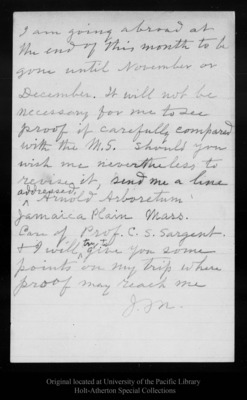 I am going abroad at
the end of this month to be
gone until November or
December. It will not be
necessary for me to see
proof if carefully compared
with the M.S. Should you
wish me nevertheless to
revise it, send me a line
addressed, Arnold Arboretum
Jamaica Plain Mass.
Care of Prof. C. S. Sargent.
& I will try to give you some
points on my trip where
proof may reach me
J.M.
Original located at University of the Pacific Library
Holt-Atherton Special Collections